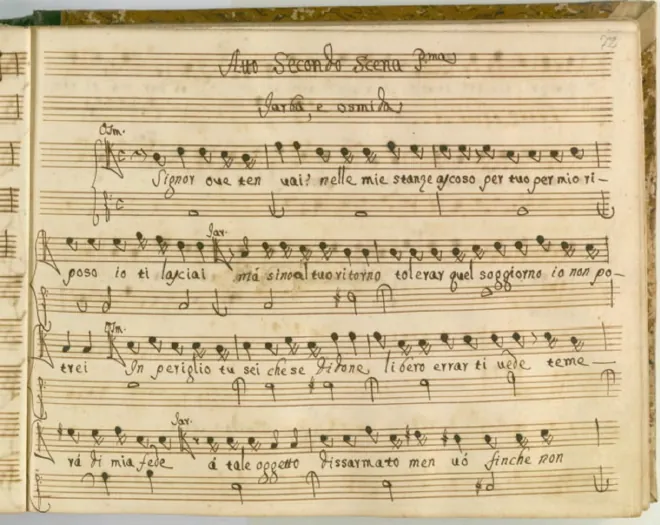 Atto Secondo Scena P.ma
Jarba, e osmida
Osm.
Signor ove ten vai? nelle mie stanze ascoso per tuo per mio ri-
Jar.
poso io ti lasciai má sino al tuo ritorno tolerar quel soggiorno io non po-
Osm.
trei In periglio tu sei che se Didone libero errar ti vede teme-
Jar.
rá di mia fede á tale oggetto dissarmato men vó finche non